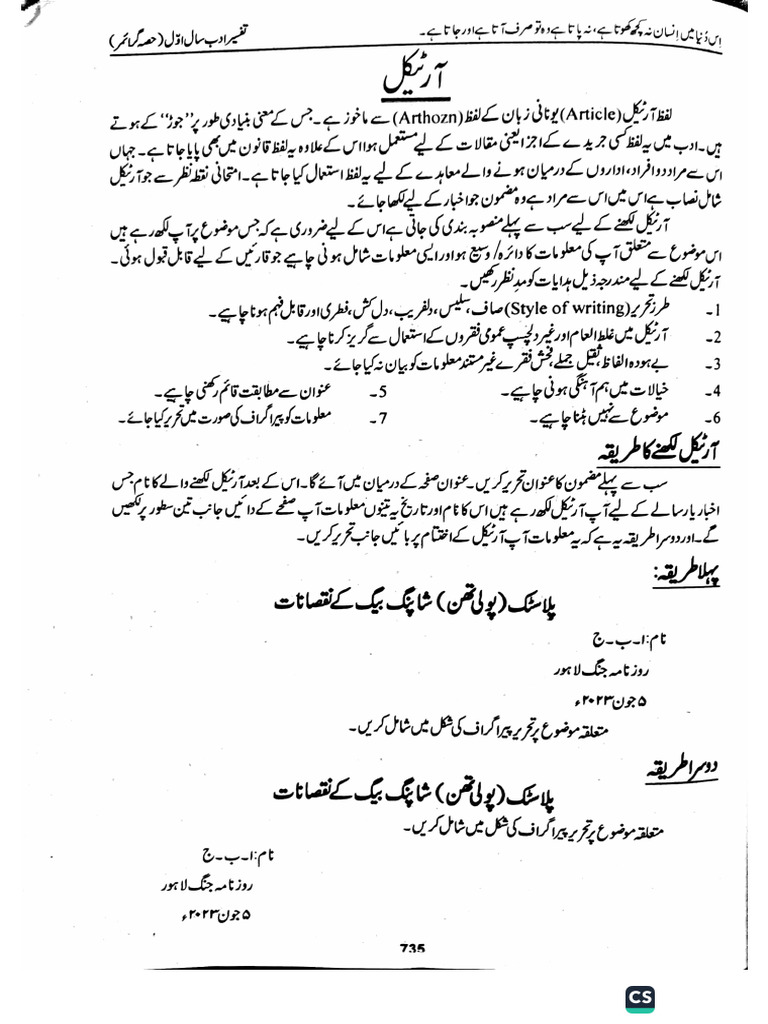 اِس دُنیا میں اِنسان نہ کچھ کھوتا ہے، نہ پاتا ہے وہ تو صرف آتا ہے اور جاتا ہے۔ تفسیر ادب سال اوّل (حصہ گرائمر)
آرٹیکل
لفظ آرٹیکل (Article) یونانی زبان کے لفظ (Arthozn) سے ماخوذ ہے۔ جس کے معنی بنیادی طور پر ’’جوڑ‘‘ کے ہوتے
ہیں۔ ادب میں یہ لفظ کسی جریدے کے اجزا یعنی مقالات کے لیے مستعمل ہوا اس کے علاوہ یہ لفظ قانون میں بھی پایا جاتا ہے۔ جہاں
اس سے مراد دو افراد، اداروں کے درمیان ہونے والے معاہدے کے لیے یہ لفظ استعمال کیا جاتا ہے۔ امتحانی نقطہ نظر سے جو آرٹیکل
شامل نصاب ہے اس میں اس سے مراد ہے وہ مضمون جو اخبار کے لیے لکھا جائے۔
آرٹیکل لکھنے کے لیے سب سے پہلے منصوبہ بندی کی جاتی ہے اس کے لیے ضروری ہے کہ جس موضوع پر آپ لکھ رہے ہیں
اس موضوع سے متعلق آپ کی معلومات کا دائرہ/ وسیع ہو اور ایسی معلومات شامل ہونی چاہیے جو قارئیں کے لیے قابل قبول ہوئی۔
آرٹیکل لکھنے کے لیے مندرجہ ذیل ہدایات کو مدِ نظر رکھیں۔
1۔ طرز تحریر (Style of writing) صاف، سلیس، دلفریب، دل کش، فطری اور قابل فہم ہونا چاہیے۔
2۔ آرٹیکل میں غلط العام اور غیر دلچسپ عمومی فقروں کے استعمال سے گریز کرنا چاہیے۔
3۔ بے ہودہ الفاظ، ثقیل جملے، فحش فقرے غیر مستند معلومات کو بیان نہ کیا جائے۔
4۔ خیالات میں ہم آہنگی ہونی چاہیے۔ 5۔ عنوان سے مطابقت قائم رکھنی چاہیے۔
6۔ موضوع سے نہیں ہٹنا چاہیے۔ 7۔ معلومات کو پیراگراف کی صورت میں تحریر کیا جائے۔
آرٹیکل لکھنے کا طریقہ
سب سے پہلے مضمون کا عنوان تحریر کریں۔ عنوان صفحہ کے درمیان میں آئے گا۔ اس کے بعد آرٹیکل لکھنے والے کا نام جس
اخبار یا رسالے کے لیے آپ آرٹیکل لکھ رہے ہیں اس کا نام اور تاریخ یہ تینوں معلومات آپ صفحے کے دائیں جانب تین سطور پر لکھیں
گے۔ اور دوسرا طریقہ یہ ہے کہ یہ معلومات آپ آرٹیکل کے اختتام پر بائیں جانب تحریر کریں۔
پہلا طریقہ:
پلاسٹک (پولی تھن) شاپنگ بیگ کے نقصانات
نام: ا۔ب۔ج
روزنامہ جنگ لاہور
۵ جون ۲۰۲۳ء
متعلقہ موضوع پر تحریر پیراگراف کی شکل میں شامل کریں۔
دوسرا طریقہ
پلاسٹک (پولی تھن) شاپنگ بیگ کے نقصانات
متعلقہ موضوع پر تحریر پیراگراف کی شکل میں شامل کریں۔
نام: ا۔ب۔ج
روزنامہ جنگ لاہور
۵ جون ۲۰۲۳ء
735
CS